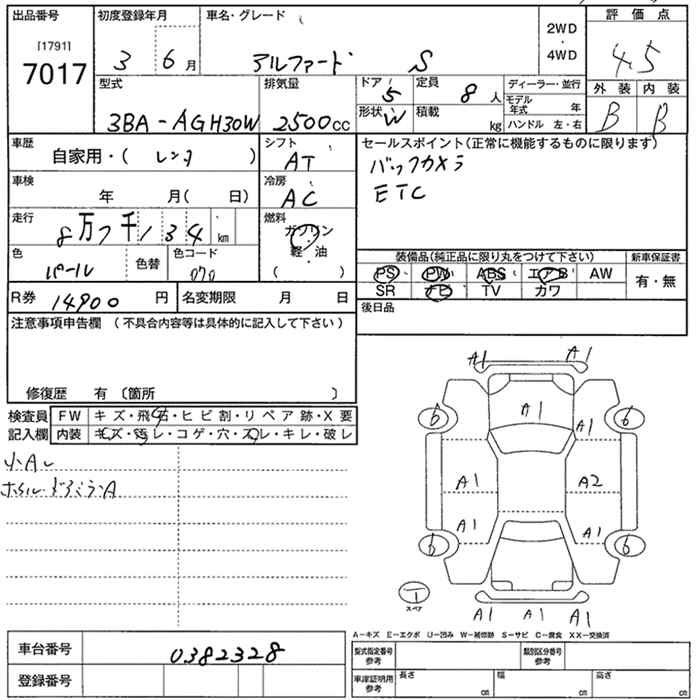 出品番号 初度登録年月 車名・グレード 2WD ・ 4WD 評価点
[1791]
7017 3 6月 アルファード S 4.5
型式 排気量 ドア 5 定員 8人 ディーラー・並行 外装 内装
3BA-AGH30W 2500cc 形状 W 積載 kg モデル年式 年 B B
ハンドル 左・右
車歴 シフト セールスポイント(正常に機能するものに限ります)
自家用・( レンタ ) AT バックカメラ
車検 年 月( 日) 冷房 AC ETC
走行 8万7千134 km 燃料 ガソリン・軽・油 ( )
色 パール 色替 色コード 070
装備品(純正品に限り丸をつけて下さい) 新車保証書
PS PW ABS エアB AW 有・無
SR ナビ TV カワ
R券 14900円 名変期限 月 日 後日品
注意事項申告欄 (不具合内容等は具体的に記入して下さい)
修復歴 有 〔箇所 〕
検査員記入欄 FW キズ・飛石・ヒビ割・リペア跡・X要
内装 キズ・汚レ・コゲ・穴・スレ・キレ・破レ
小Aレ
ホイル ドアミラーA
A1 A1
A1
6 6
A1 A2
A1 A1
6 6
T
スペア
A1 A1 A1
A-キズ E-エクボ U-凹み W-補修跡 S-サビ C-腐食 XX-交換済
車台番号 0382328
登録番号
型式指定番号 参考 類別区分番号 参考
車庫証明用 参考 長さ cm 幅 cm 高さ cm